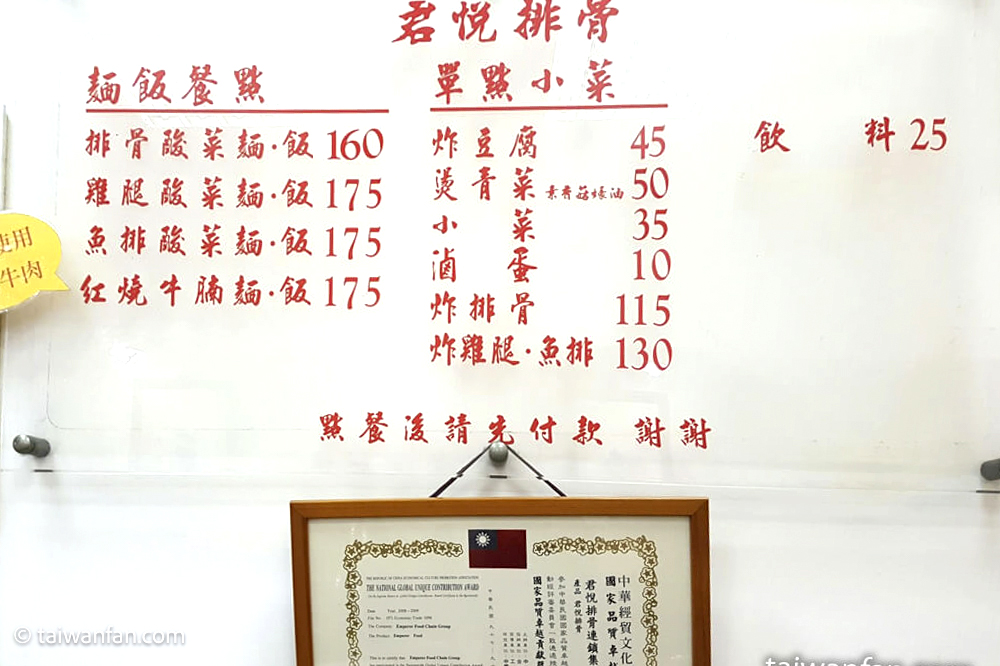 君悅排骨
麵飯餐點
排骨酸菜麵·飯 160
雞腿酸菜麵·飯 175
魚排酸菜麵·飯 175
紅燒牛腩麵·飯 175
單點小菜
炸豆腐 45
燙青菜 素香菇蠔油 50
小菜 35
滷蛋 10
炸排骨 115
炸雞腿·魚排 130
飲料 25
使用
牛肉
點餐後請先付款 謝謝
THE REPUBLIC OF CHINA ECONOMICAL CULTURE PROMOTION ASSOCIATION
THE NATIONAL GLOBAL UNIQUE CONTRIBUTION AWARD
The Company: Emperor Food Chain Group
The Product: Emperor Food
中華經貿文化
國家品質卓越
君悅排骨連鎖集
產品 君悅排骨
國家品質卓越貢獻獎
© taiwanfan.com
taiwanfan.com